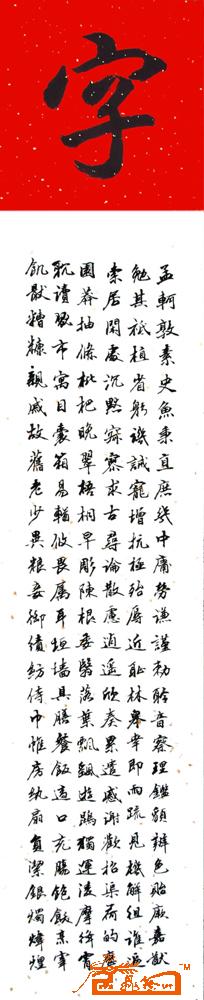 字
孟軻敦素史魚秉直庶幾中庸勞謙謹勅聆音察理鑑貌辨色貽厥嘉猷
勉其祗植省躬譏誡寵增抗極殆辱近恥林皋幸即兩疏見機解組誰逼
索居閑處沉默寂寥求古尋論散慮逍遙欣奏累遣慼謝歡招渠荷的歷
園莽抽條枇杷晚翠梧桐早彫陳根委翳落葉飄颻遊鵾獨運凌摩絳霄
耽讀翫市寓目囊箱易輶攸畏屬耳垣墻具膳餐飯適口充腸飽飫烹宰
飢猒糟糠親戚故舊老少異糧妾御績紡侍巾帷房紈扇員潔銀燭煒煌